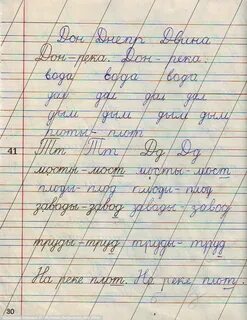 Дон Днепр Двина
Дон-река. Дон-река
вода вода вода
дал дал дал дал
дым дым дым дым
плоты - плот
41 Тт Тт Дд Дд
мосты-мост мосты-мост
плоды-плод плоды-плод
заводы-завод заводы-завод
труды-труд труды-труд
На реке плот. На реке плот.
30